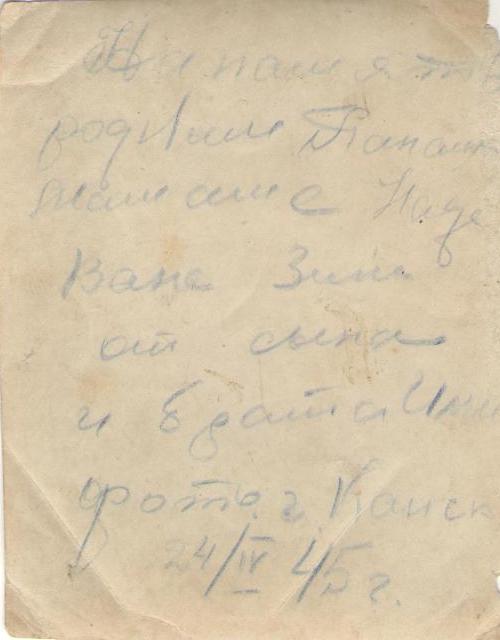 На память
родным Папаше
Мамаше Наде
Ване Зине
от сына
и брата
фото. г Канск
24/IV 45 г.